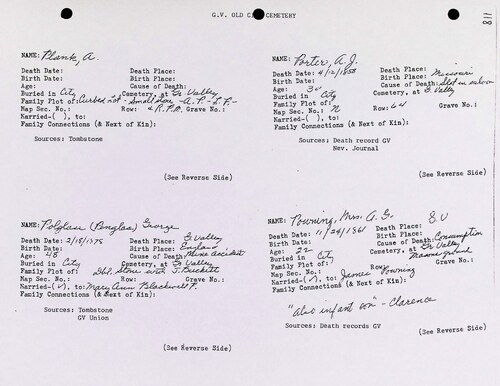 G.V. OLD CITY CEMETERY
118
NAME: Plank, A.
Death Date: Death Place:
Birth Date: Birth Place:
Age: Cause of Death:
Buried in City Cemetery, at Gr Valley
Family Plot of: Curbed plot - small stone - A.P. - L.F. -
Map Sec. No.: Row: Grave No.:
Married-( ), to:
Family Connections (& Next of Kin):
Sources: Tombstone
(See Reverse Side)
NAME: Porter, A.J.
Death Date: 4/12/1858 Death Place:
Birth Date: Birth Place: Missouri
Age: 30 Cause of Death: Shot in saloon
Buried in City Cemetery, at G. Valley
Family Plot of:
Map Sec. No.: Row: 64 Grave No.:
Married-( ), to:
Family Connections (& Next of Kin):
Sources: Death record GV
Nev. Journal
(See Reverse Side)
NAME: Polglase (Penglas) George
Death Date: 2/18/1875 Death Place: G Valley
Birth Date: Birth Place: England
Age: 48 Cause of Death: Mine accident
Buried in City Cemetery, at Gr Valley
Family Plot of: Dbl. stone with J. Buckett
Map Sec. No.: Row: Grave No.:
Married-(√), to: Mary Ann Blackwell P.
Family Connections (& Next of Kin):
Sources: Tombstone
GV Union
(See Reverse Side)
NAME: Powning, Mrs. A. G.
Death Date: 11/24/1861 Death Place: G V
Birth Date: Birth Place:
Age: 25 Cause of Death: Consumption
Buried in City Cemetery, at Gr Valley
Family Plot of: Masonic ground
Map Sec. No.: Row: Grave No.:
Married-(√), to: James Powning
Family Connections (& Next of Kin):
"also infant son" - Clarence
Sources: Death records GV
(See Reverse Side)